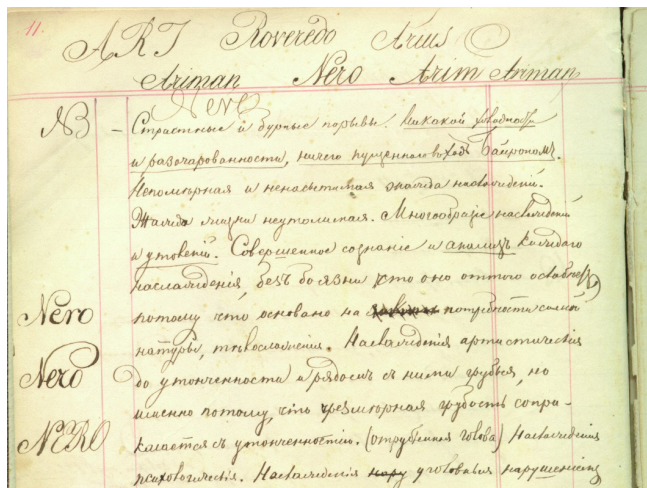 11.
ART Roveredo Arius
Ariman Nero Arim Ariman
Nero
NB — Страстные и бурные порывы. Никакой холодности
и разочарованности, ничего пущеннаго въ ходъ Байрономъ.
Непомѣрная и ненасытимая жажда наслажденій.
Жажда жизни неутолимая. Многообразіе наслажденій
и утоленій. Совершенное сознаніе и анализъ каждаго
наслажденія, безъ боязни что оно оттого ослабнетъ,
Nero потому что основано на потребности самой
натуры, тѣлосложенія. Наслажденія артистическія
Nero до утонченности и рядомъ съ ними грубыя, но
именно потому, что чрезмѣрная грубость сопри-
NERO касается съ утонченностію. (отрубленная голова) Наслажденія
психологическія. Наслажденія уголовныя нарушеніемъ